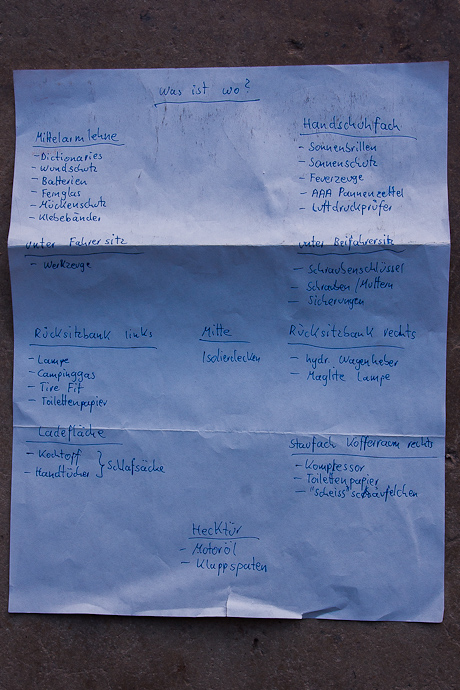 Was ist wo?
Mittelarmlehne
- Dictionaries
- Wundschutz
- Batterien
- Fernglas
- Mückenschutz
- Klebebänder
Handschuhfach
- Sonnenbrillen
- Sonnenschutz
- Feuerzeuge
- AAA Pannenzettel
- Luftdruckprüfer
unter Fahrersitz
- Werkzeuge
unter Beifahrersitz
- Schraubenschlüssel
- Schrauben/Muttern
- Sicherungen
Rücksitzbank links
- Lampe
- Campinggas
- Tire Fit
- Toilettenpapier
Mitte
Isolierdecken
Rücksitzbank rechts
- hydr. Wagenheber
- Maglite Lampe
Ladefläche
- Kochtopf
- Handtücher } Schlafsäcke
Staufach Kofferraum rechts
- Kompressor
- Toilettenpapier
- "Scheiss"schäufelchen
Hecktür
- Motoröl
- Klappspaten